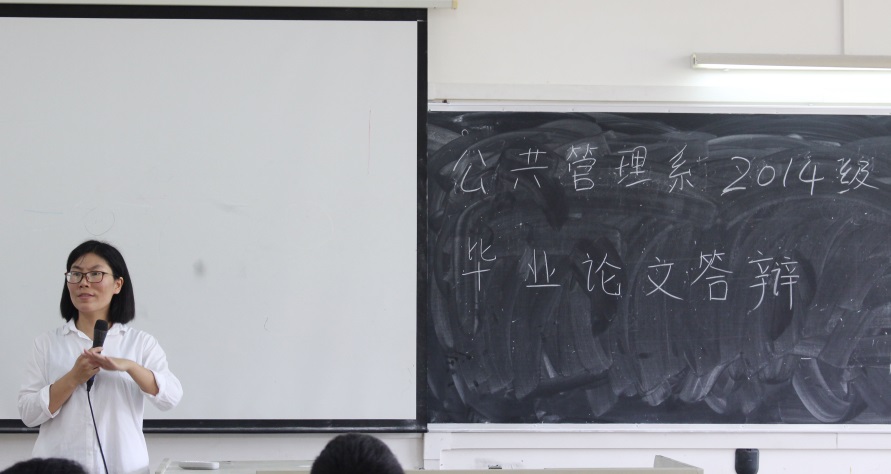 公共管理系2014级
毕业论文答辩